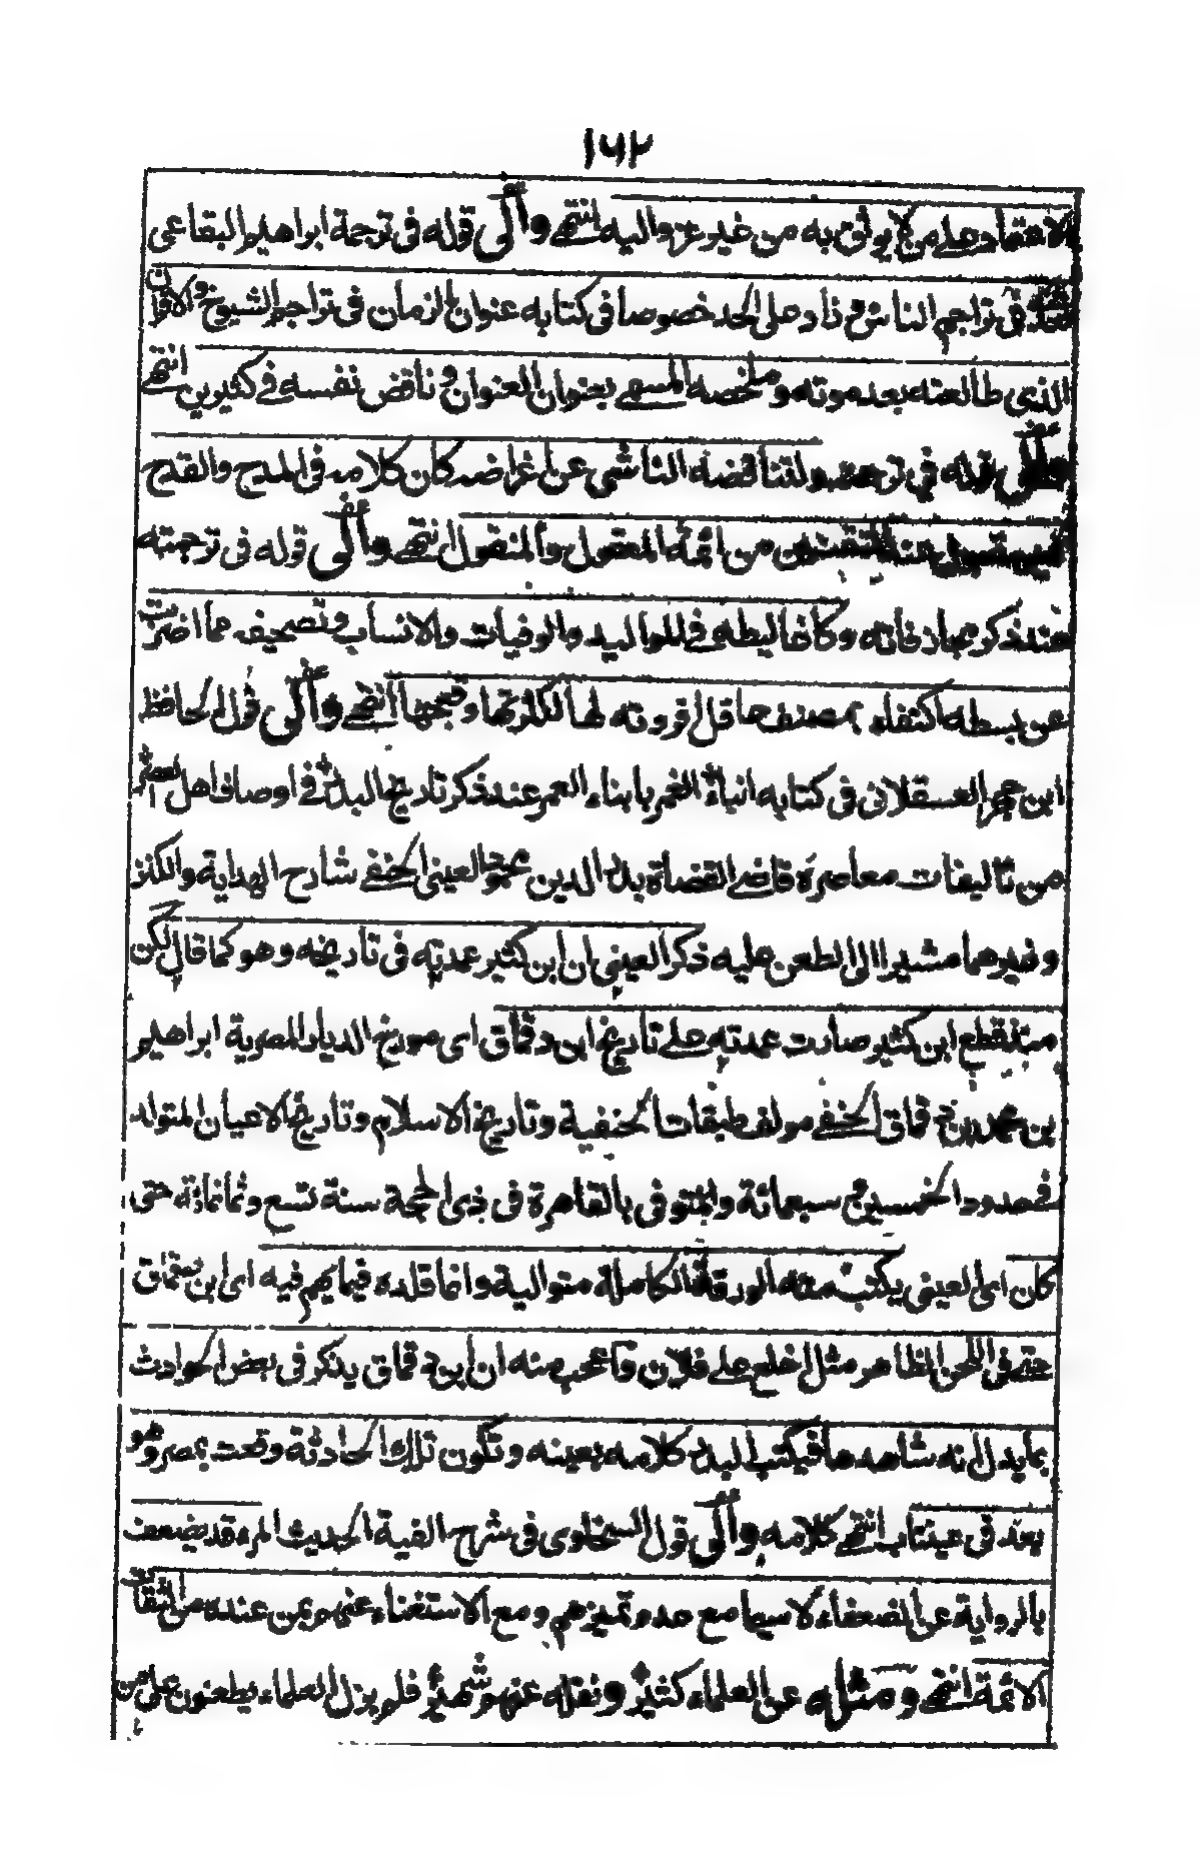 ١٦٢
الاعتماد على من لا يوثق به من غير عزو اليه انتهى والى قوله فى ترجمة ابراهيم البقاعى
فى تراجم الناس و زاد على الحد خصوصا فى كتابه عنوان الزمان فى تراجم الشيوخ والاقران
الذى طالعته بعد موته و ملخصه المسمى بعنوان العنوان و ناقض نفسه فى كثيرين انتهى
والى قوله فى ترجمته ولتناقضه الناشى عن اغراضه كان كلامه فى المدح والقدح
غير مقبول عند المتقنين من ائمة المعقول والمنقول انتهى والى قوله فى ترجمته
عند ذكر مجازفاته وكاغاليطه فى المواليد والوفيات والانساب وتصحيف مما اضربت
عن بسطه اكتفاء بمصنف حاقل افردته لها لكثرتها وقبحها انتهى والى قول الحافظ
ابن حجر العسقلانى فى كتابه انباء الغمر بابناء العمر عند ذكر تاريخ البدر فى اوصاف اهل العصر
من تاليفات معاصره قاضى القضاة بدر الدين محمود العينى الحنفى شارح الهداية والكنز
وغيرهما مشيرا الى الطعن عليه ذكر العينى ان ابن كثير عمدته فى تاريخه وهو كما قال لكن
منذ قطع ابن كثير صارت عمدته على تاريخ ابن دقماق اى مورخ الديار المصرية ابراهيم
بن محمد بن دقماق الحنفى مولف طبقات الحنفية وتاريخ الاسلام وتاريخ الاعيان المتولد
فى حدود الخمسين و سبعمائة والمتوفى بالقاهرة فى ذى الحجة سنة تسع وثمانمائة حتى
كان اى العينى يكتب منه الورقة الكاملة متوالية وانما قلده فيما يهم فيه اى ابن دقماق
حتى فى اللحن الظاهر مثل اخلع على فلان و اعجب منه ان ابن دقماق يذكر فى بعض الحوادث
بما يدل انه شاهدها فيكتب البدر كلامه بعينه و تكون تلك الحادثة وقعت بمصر وهو
بعد فى عينتاب انتهى كلامه والى قول السخاوى فى شرح الفية الحديث المرء قد يضعف
بالرواية عن الضعفاء لا سيما مع عدم تميزهم و مع الاستغناء عنهم بمن عنده من الثقات
الائمة انتهى و مثله عن العلماء كثير و نقله عنهم شهير فلم يزل العلماء يطعنون على من